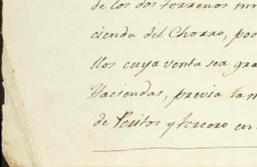 de los dos terrenos
cienda del Chorro, po
llos cuya venta sea gra
Haciendas, previa la
de Peritos y tercero en